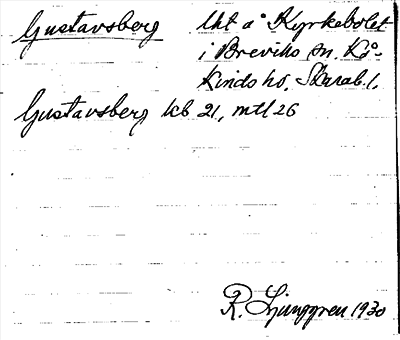 Gustavsberg lht å Kyrkebolet
i Breviks sn. Kå-
kinds hd, Skarab. l.
Gustavsberg kb 21, mtl 26
R. Ljunggren 1930